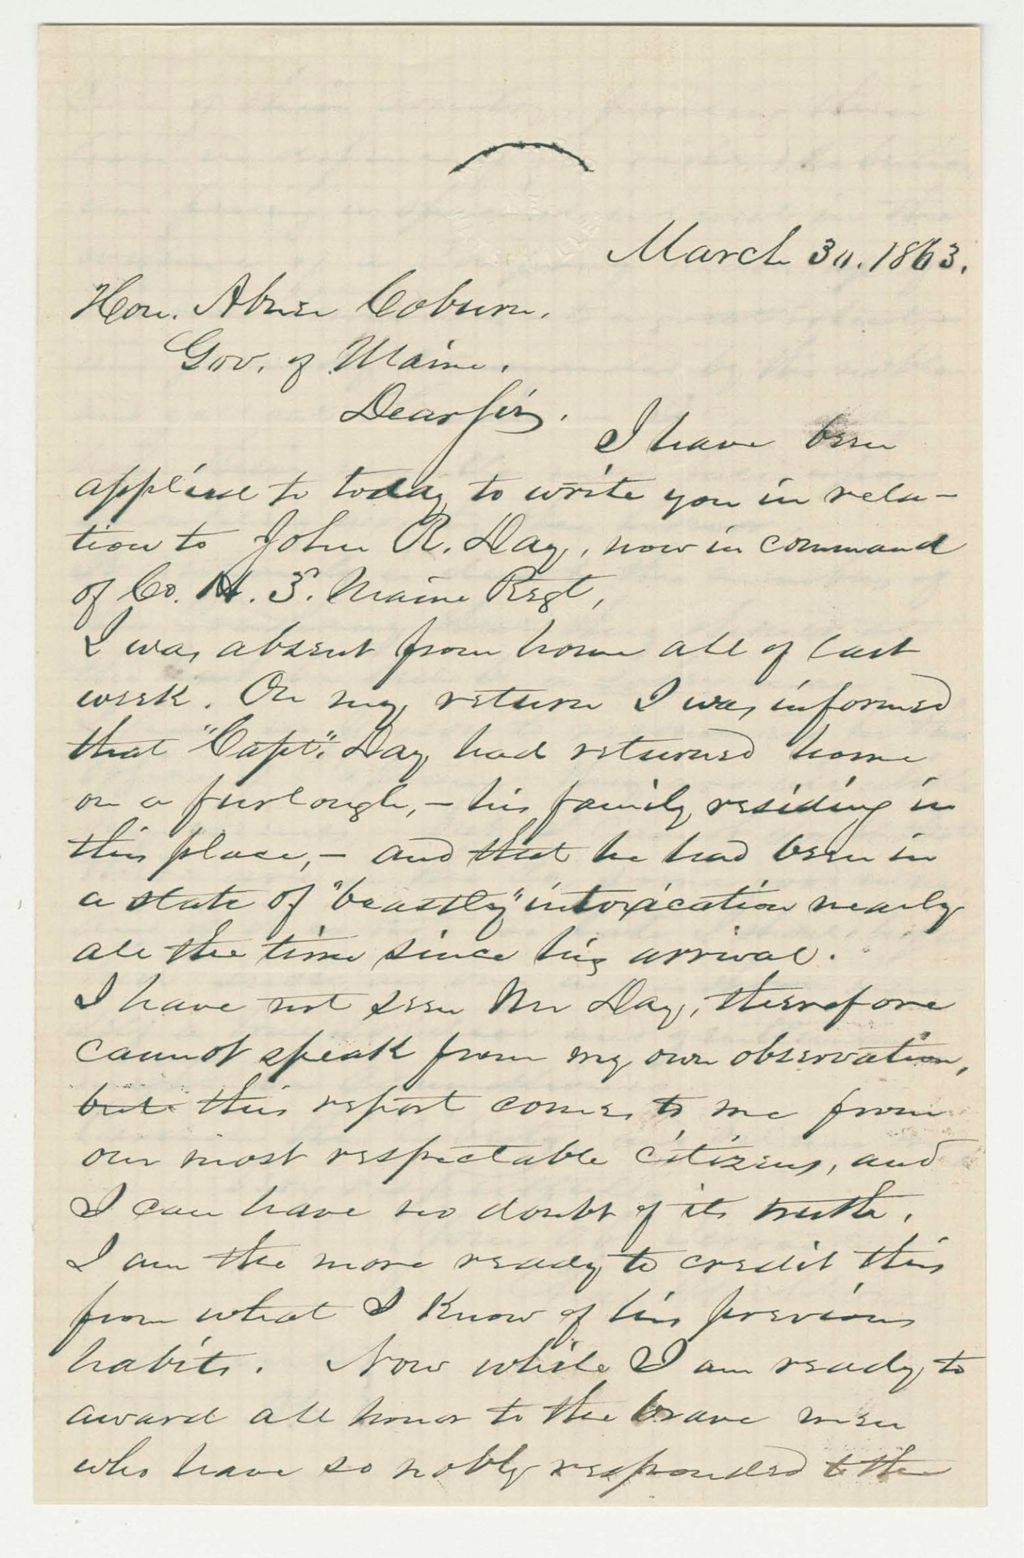 March 30. 1863.
Hon. Abner Coburn.
Gov. of Maine.
Dear Sir.
I have been
applied to today to write you in rela-
tion to John R. Day, now in command
of Co. H. 3. Maine Regt,
I was absent from home all of last
week. On my return I was informed
that "Capt." Day had returned home
on a furlough, - his family residing in
this place, - and that he had been in
a state of "beastly" intoxication nearly
all the time since his arrival.
I have not seen Mr Day, therefore
cannot speak from my own observation,
but this report comes to me from
our most respectable citizens, and
I can have no doubt of its truth.
I am the more ready to credit this
from what I know of his previous
habits. Now while I am ready to
award all honor to the brave men
who have so nobly responded to the